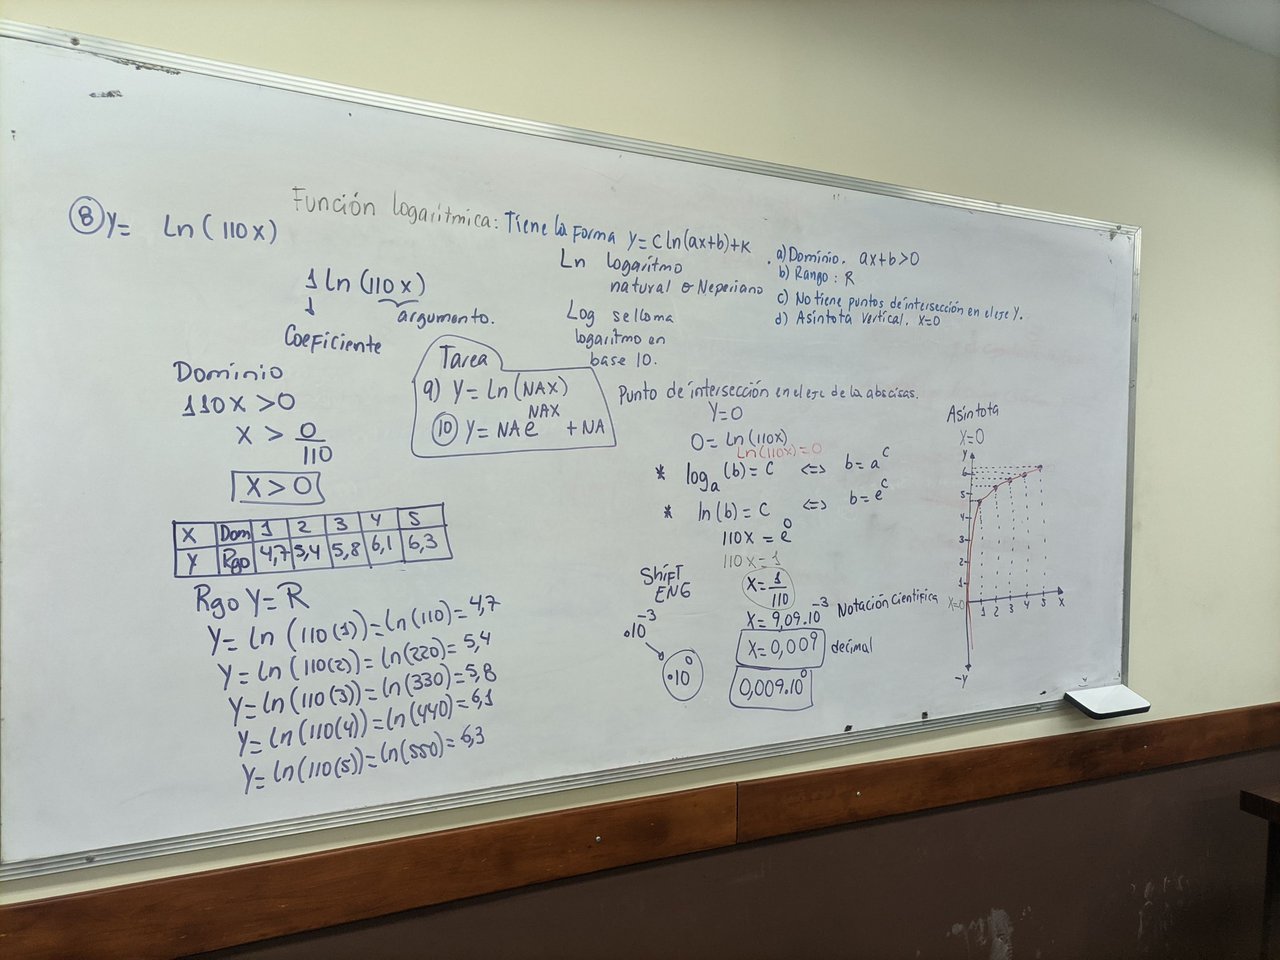 Función logarítmica: Tiene la forma y= c ln(ax+b)+K
⑧ y= Ln (110x)
1 ln (110x)
argumento.
Coeficiente
Ln logaritmo
natural o Neperiano
Log se llama
logaritmo en
base 10.
a) Dominio. ax+b>0
b) Rango: R
c) No tiene puntos de intersección en el eje Y.
d) Asíntota vertical. x=0
Dominio
110x >0
x > 0/110
x >0
Tarea
9) y= Ln (NAX)
⑩ y= NA e^NAX + NA
X Dom 1 2 3 4 5
Y Rgo 4,7 5,4 5,8 6,1 6,3
Rgo Y= R
Y= ln (110(1))= ln(110)= 4,7
Y= ln (110(2))= ln(220)= 5,4
Y= ln (110(3))= ln(330)= 5,8
Y= ln (110(4))= ln(440)= 6,1
Y= ln (110(5))= ln(550)= 6,3
Punto de intersección en el eje de la abscisas.
Y=0
0= Ln (110x)
Ln(110x)=0
* log_a (b)= c <=> b= a^c
* ln (b)= c <=> b= e^c
110x = e^0
110x=1
x= 1/110
x= 9,09.10^-3 Notación Científica
x= 0,009 decimal
0,009.10^0
Shift
ENG
.10^-3
.10^0
Asíntota
x=0
y
6
5
4
3
2
1
x=0
1 2 3 4 5 x
-y